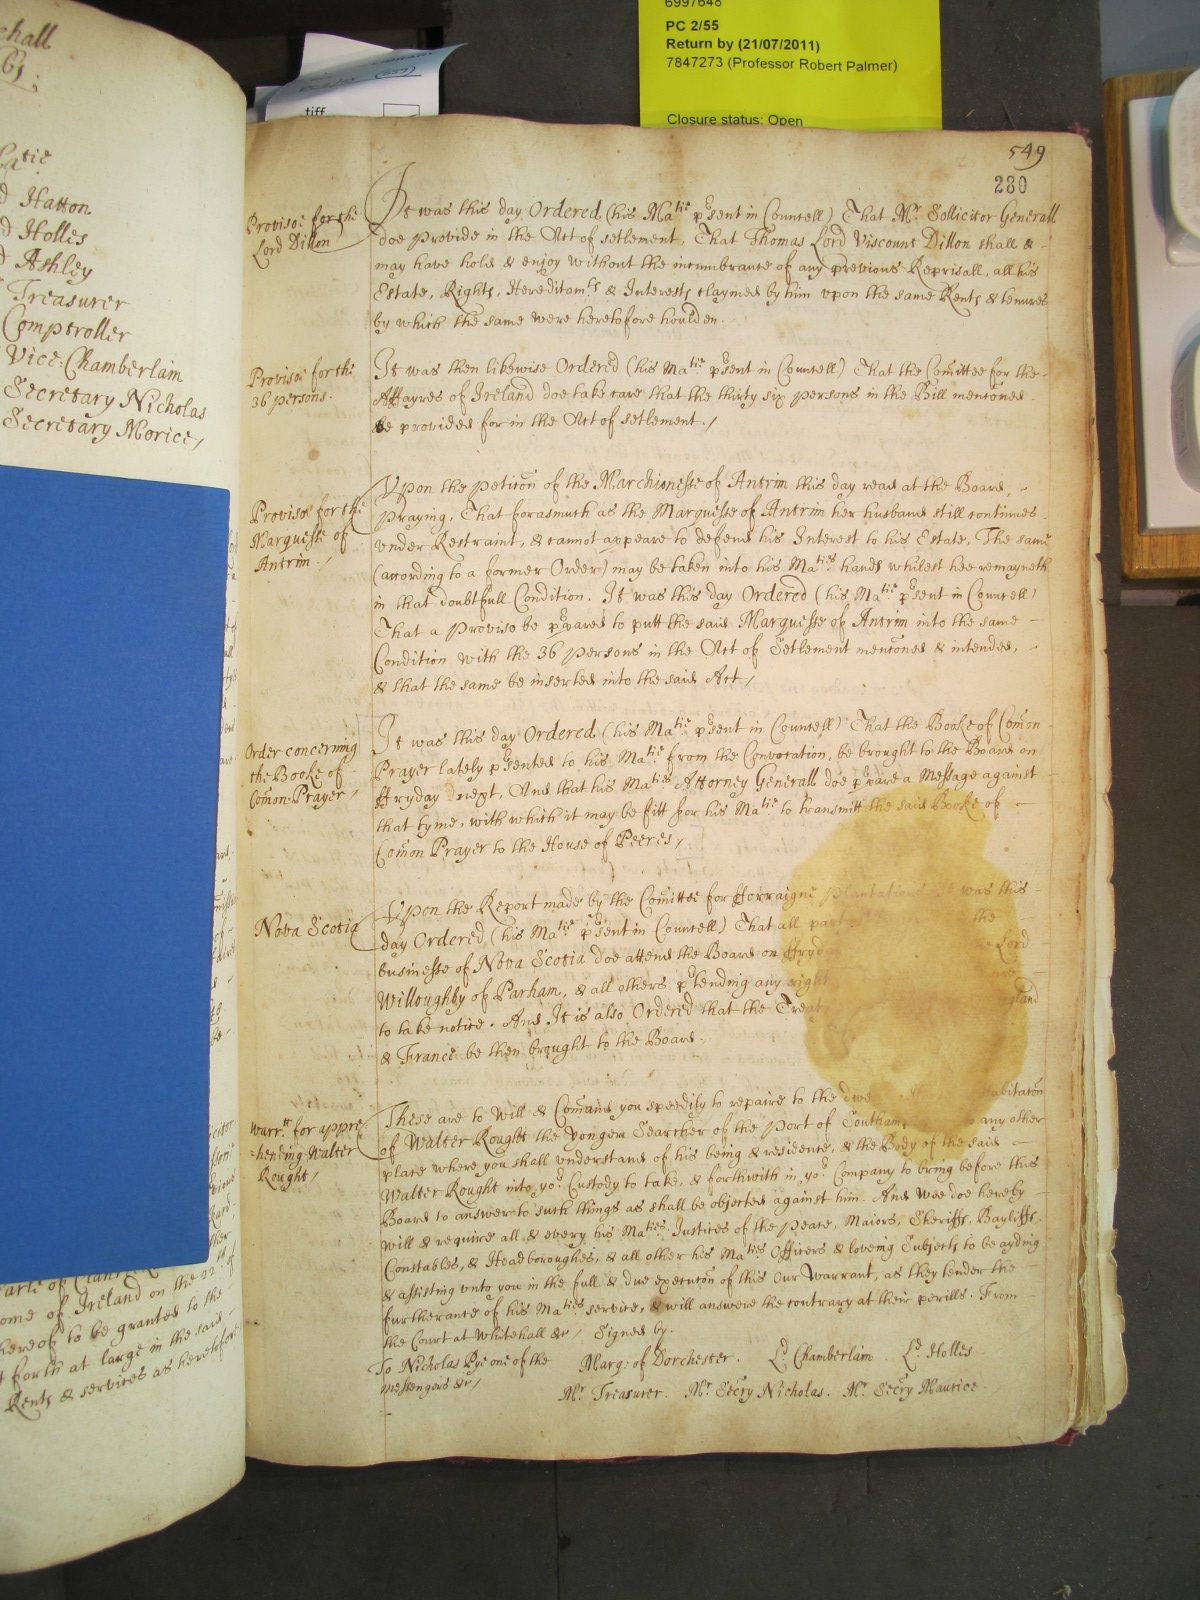 6997648
PC 2/55
Return by (21/07/2011)
7847273 (Professor Robert Palmer)
Closure status: Open
tiff
Hatton
Holles
Ashley
Treasurer
Comptroller
Vice-Chamberlain
Secretary Nicholas
Secretary Morice/
ome of Ireland on the 22th of
hereof to be granted to the
forth at large in the said
Rents & services as heretofore
549
280
Provisoe for the
Lord Dillon
It was this day Ordered (his Matie prsent in Councell) That Mr. Sollicitor Generall
doe provide in the Act of setlement, That Thomas Lord Viscount Dillon shall &
may have hold & enjoy without the incumbrance of any previous Reprisall, all his
Estate, Rights, Hereditamts & Interests claymed by him upon the same Rents & tenures
by which the same were heretofore houlden.
Provisoe for the
36 persons.
It was then likewise Ordered (his Matie prsent in Councell) That the Comittee for the
Affayres of Ireland doe take care that the thirty six persons in the Bill mentioned
be provided for in the Act of setlement./
Provisoe for the
Marquesse of
Antrim./
Upon the peticon of the Marchionesse of Antrim this day read at the Board,
praying, That forasmuch as the Marquesse of Antrim her husband still continues
under Restraint, & cannot appeare to defend his Interest to his Estate, The same
(according to a former Order) may be taken into his Maties hands whilest hee remayneth
in that doubtfull Condition. It was this day Ordered (his Matie prsent in Councell)
That a Proviso be prpared to putt the said Marquesse of Antrim into the same
Condition with the 36 persons in the Act of Setlement mentoned & intended,
& that the same be inserted into the said Act/
Order concerning
the Booke of
Comon-Prayer/
It was this day Ordered (his Matie prsent in Councell) That the Booke of Comon
Prayer lately prsented to his Matie from the Convocation, be brought to the Board on
ffryday next, And that his Maties Attorney Generall doe prpare a Message against
that tyme, with which it may be fitt for his Matie to transmitt the said Booke of
Comon Prayer to the House of Peeres/
Nova Scotia
Upon the Report made by the Comittee for fforraigne Plantations It was this
day Ordered (his Matie prsent in Councell) That all part the
businesse of Nova Scotia doe attend the Board on ffryd the Lord
Willoughby of Parham, & all others prtending any right are
to take notice. And It is also Ordered that the Treat gland
& France be then brought to the Board.
Warrt. for appre-
=hending Walter
Rought/
These are to will & Comaund you speedily to repaire to the dwe abitaton
of Walter Rought the yonger Searcher of the port of Southam o any other
place where you shall understand of his being & residence, & the Body of the said
Walter Rought into yor Custody to take, & forthwith in yor Company to bring before this
Board to answer to such things as shall be objected against him. And Wee doe hereby
will & require all & every his Maties Justices of the peace, Maiors, Sheriffs, Bayliffs,
Constables, & Headboroughes, & all other his Maties Officers & loveing Subjects to be ayding
& assisting unto you in the full & due execucon of this Our Warrant, as they tender the
furtherance of his Maties service, & will answere the contrary at their perills. From
the Court at Whitehall &c/ Signed by.
To Nicholas Pye one of the
messengers &c/
Marq: of Dorchester. Ld Chamberlain. Ld Holles
Mr Treasurer. Mr Secry Nicholas. Mr Secry Maurice.